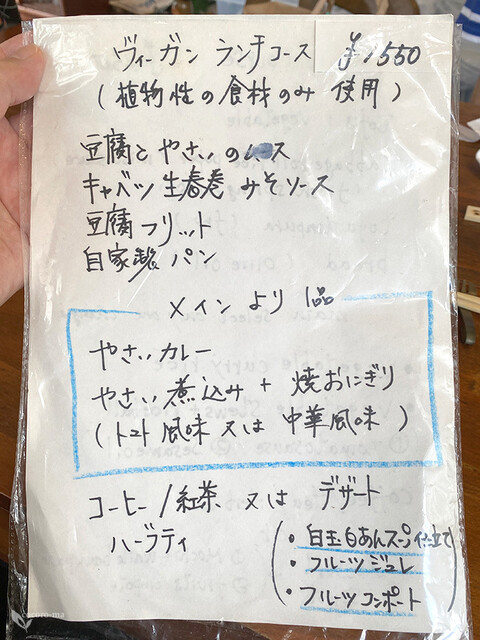 ヴィーガン ランチコース ￥1550
(植物性の食材のみ 使用)
豆腐とやさいのムース
キャベツ生春巻 みそソース
豆腐フリット
自家製パン
メインより 1品
やさいカレー
やさい煮込み + 焼おにぎり
(トマト風味 又は 中華風味)
コーヒー/紅茶 又は デザート
ハーブティ
(・白玉白あんスープ仕立て
・フルーツジュレ
・フルーツコンポート)